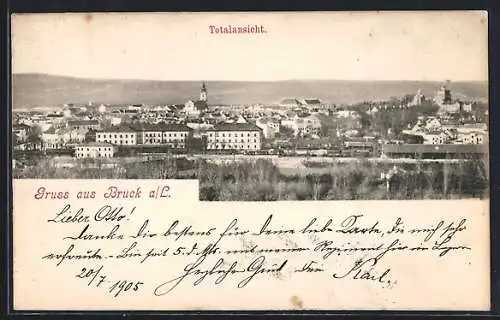 Totalansicht.
Gruss aus Bruck a/L.
Lieber Otto!
danke dir bestens für deine liebe Karte, die mich sehr
erfreute. - Bin seit 5. d. Mts. mit meinem Regiment hier in Lager
20/7 1905 Herzliche Grüße dein Karl.